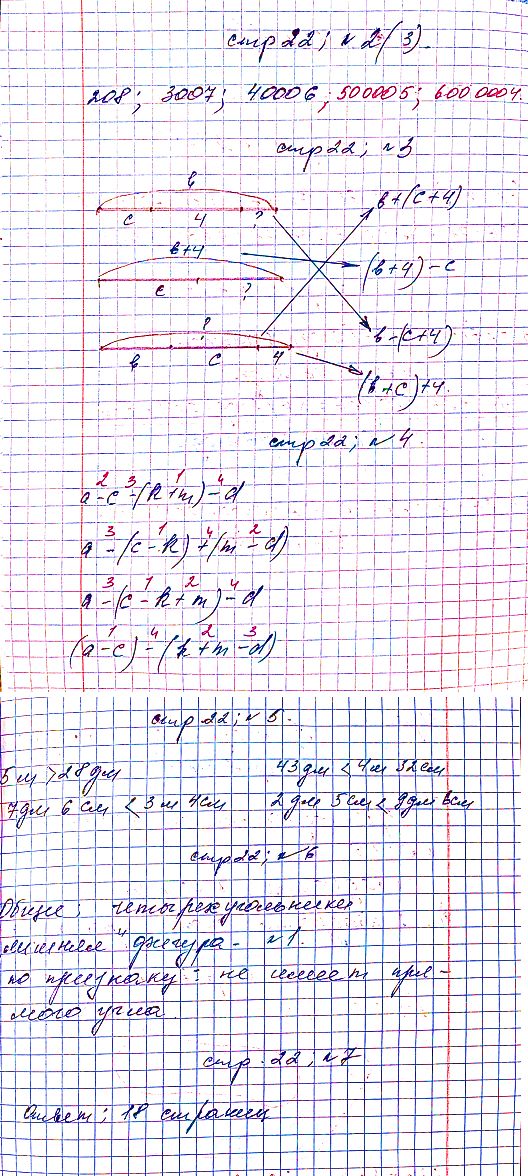 стр 22; № 2(3).
208; 3007; 40006; 500005; 6000004.
стр 22; № 3
в
с 4 ?
в + (с + 4)
в + 4
с ?
(в + 4) - с
?
в с 4
в - (с + 4)
(в + с) + 4.
стр 22; № 4.
2 3 1 4
a - c - (k + m) - d
3 1 4 2
a - (c - k) + (m - d)
3 1 2 4
a - (c - k + m) - d
1 4 2 3
(a - c) - (k + m - d)
стр 22; № 5.
5 м > 28 дм 43 дм < 4 м 32 см
7 дм 6 см < 3 м 4 см 2 дм 5 см < 9 дм 8 см
стр 22; № 6
Общее: четырехугольники
"лишняя" фигура - № 1.
по признаку: не имеет пря-
мого угла.
стр. 22; № 7
Ответ: 18 страниц